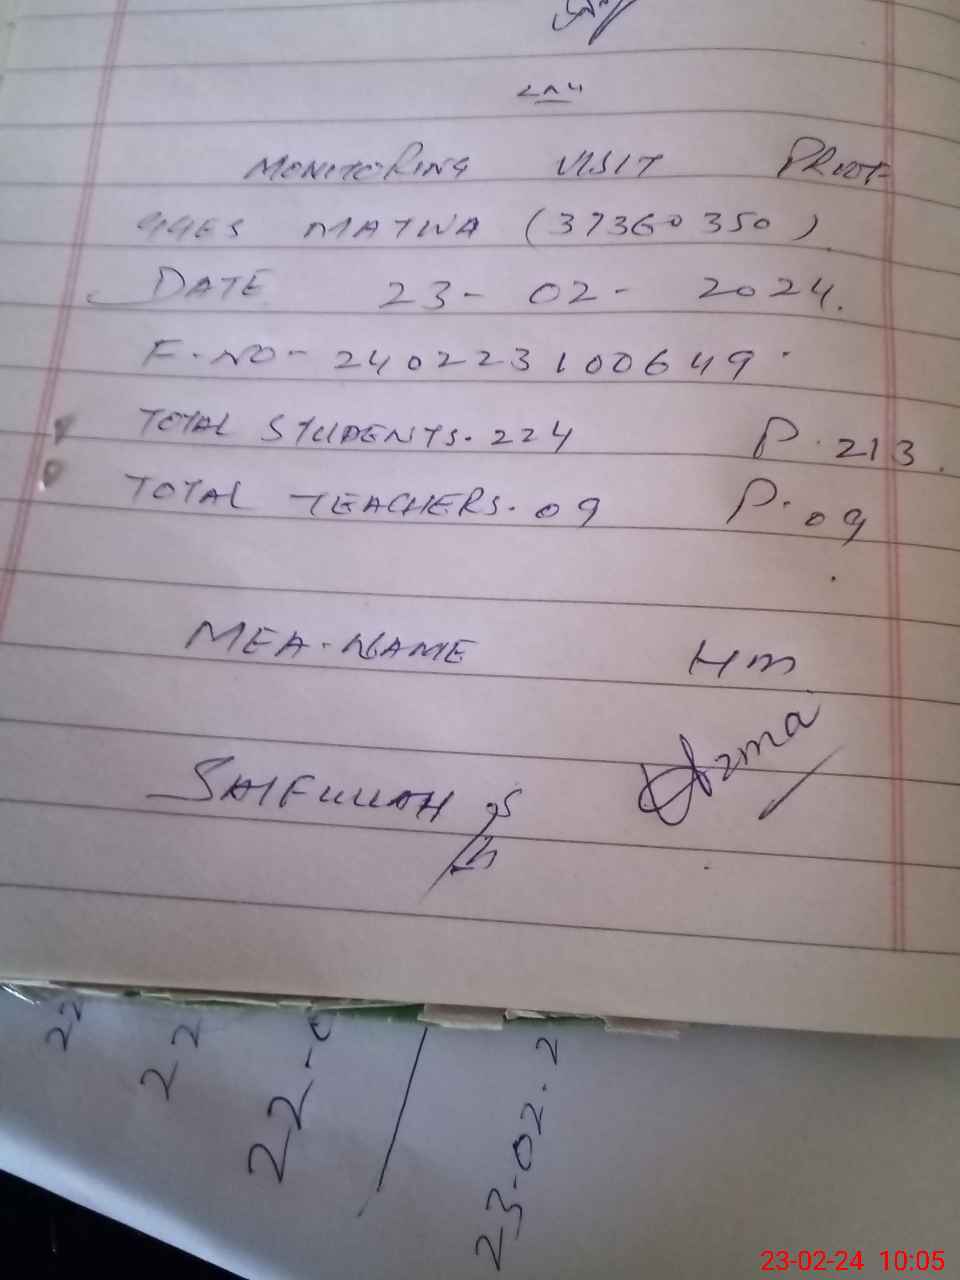 MONITORING VISIT PROOF
GGES MATWA (37360350).
DATE 23-02-2024.
F-NO-240223100649.
TOTAL STUDENTS. 224 P. 213.
TOTAL TEACHERS. 09 P. 09
MEA-NAME HM
SAIFULLAH Uzma
22
22
22-0
23-02.2
23-02-24 10:05